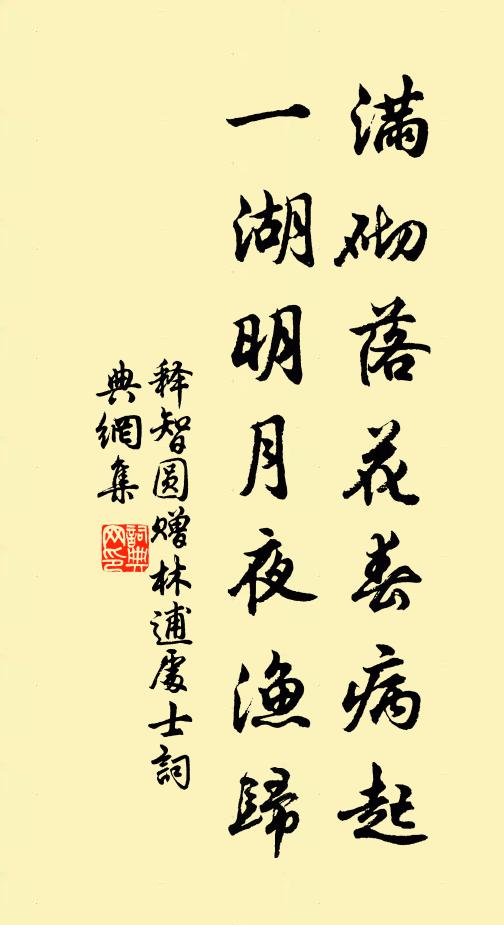 满砌落花春病起
一湖明月夜渔歸
释智圆赠林逋處士詞
典網集
詞典
网印